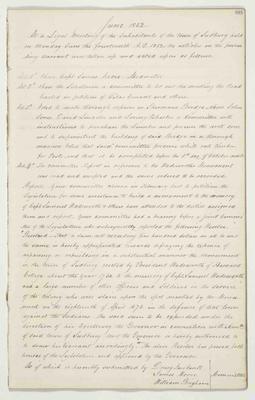 June 1852
At a Legal Meeting of the Inhabitants of the town of Sudbury held
on Monday June the fourteenth A.D. 1852, the articles in the
warrant was taken up and acted upon as follows
Art 1st Chose Capt James Moore Moderator
Art 2d Chose the Selectmen a committee to
petition of
Art 3d Voted to make thorough repairs on Sherman's Bridge Chose John
a Committee with
instructions to purchase the lumber and procure the work done
and to superintend the building of said Bridge in a thorough
manner Voted that said committee procure white oak timber
for Posts and that it be completed before the 1st day of October next
The Committee Report in reference to the Wadsworth Monument
was read and accepted and the same ordered to be recorded
Report. Your committee chosen in February last to petition the
Legislature for some assistance to build a monument to the memory
of Capt Samuel Wadsworth & others have attended to the duties assigned
them and report. Your committee had a hearing before a joint Committee
of the Legislature who subsequently reported the following Resolve.
Resolved That a sum not exceeding five hundred dollars be and is
the same is hereby appropriated towards defraying the expense of
repairing or rebuilding in a substantial manner the Monument
in the town of Sudbury erected by President Wadsworth of Harvard
College about the year 1730 to the memory of Capt Samuel Wadsworth
and a large number of other Officers and Soldiers in the service
of the Colony who were slain upon the spot marked by the Monu-
ment on the eighteenth of April 1676 in the defence of that town
against the Indians. The said sum to be expended under the
direction of his Excellency the Governor in connection with
of said town of Sudbury and the Governor is hereby authorized to
to draw his warrant accordingly. The above Resolve has passed both
houses of the Legislature and approved by the Governor
All of which is humbly submitted by
James Moore